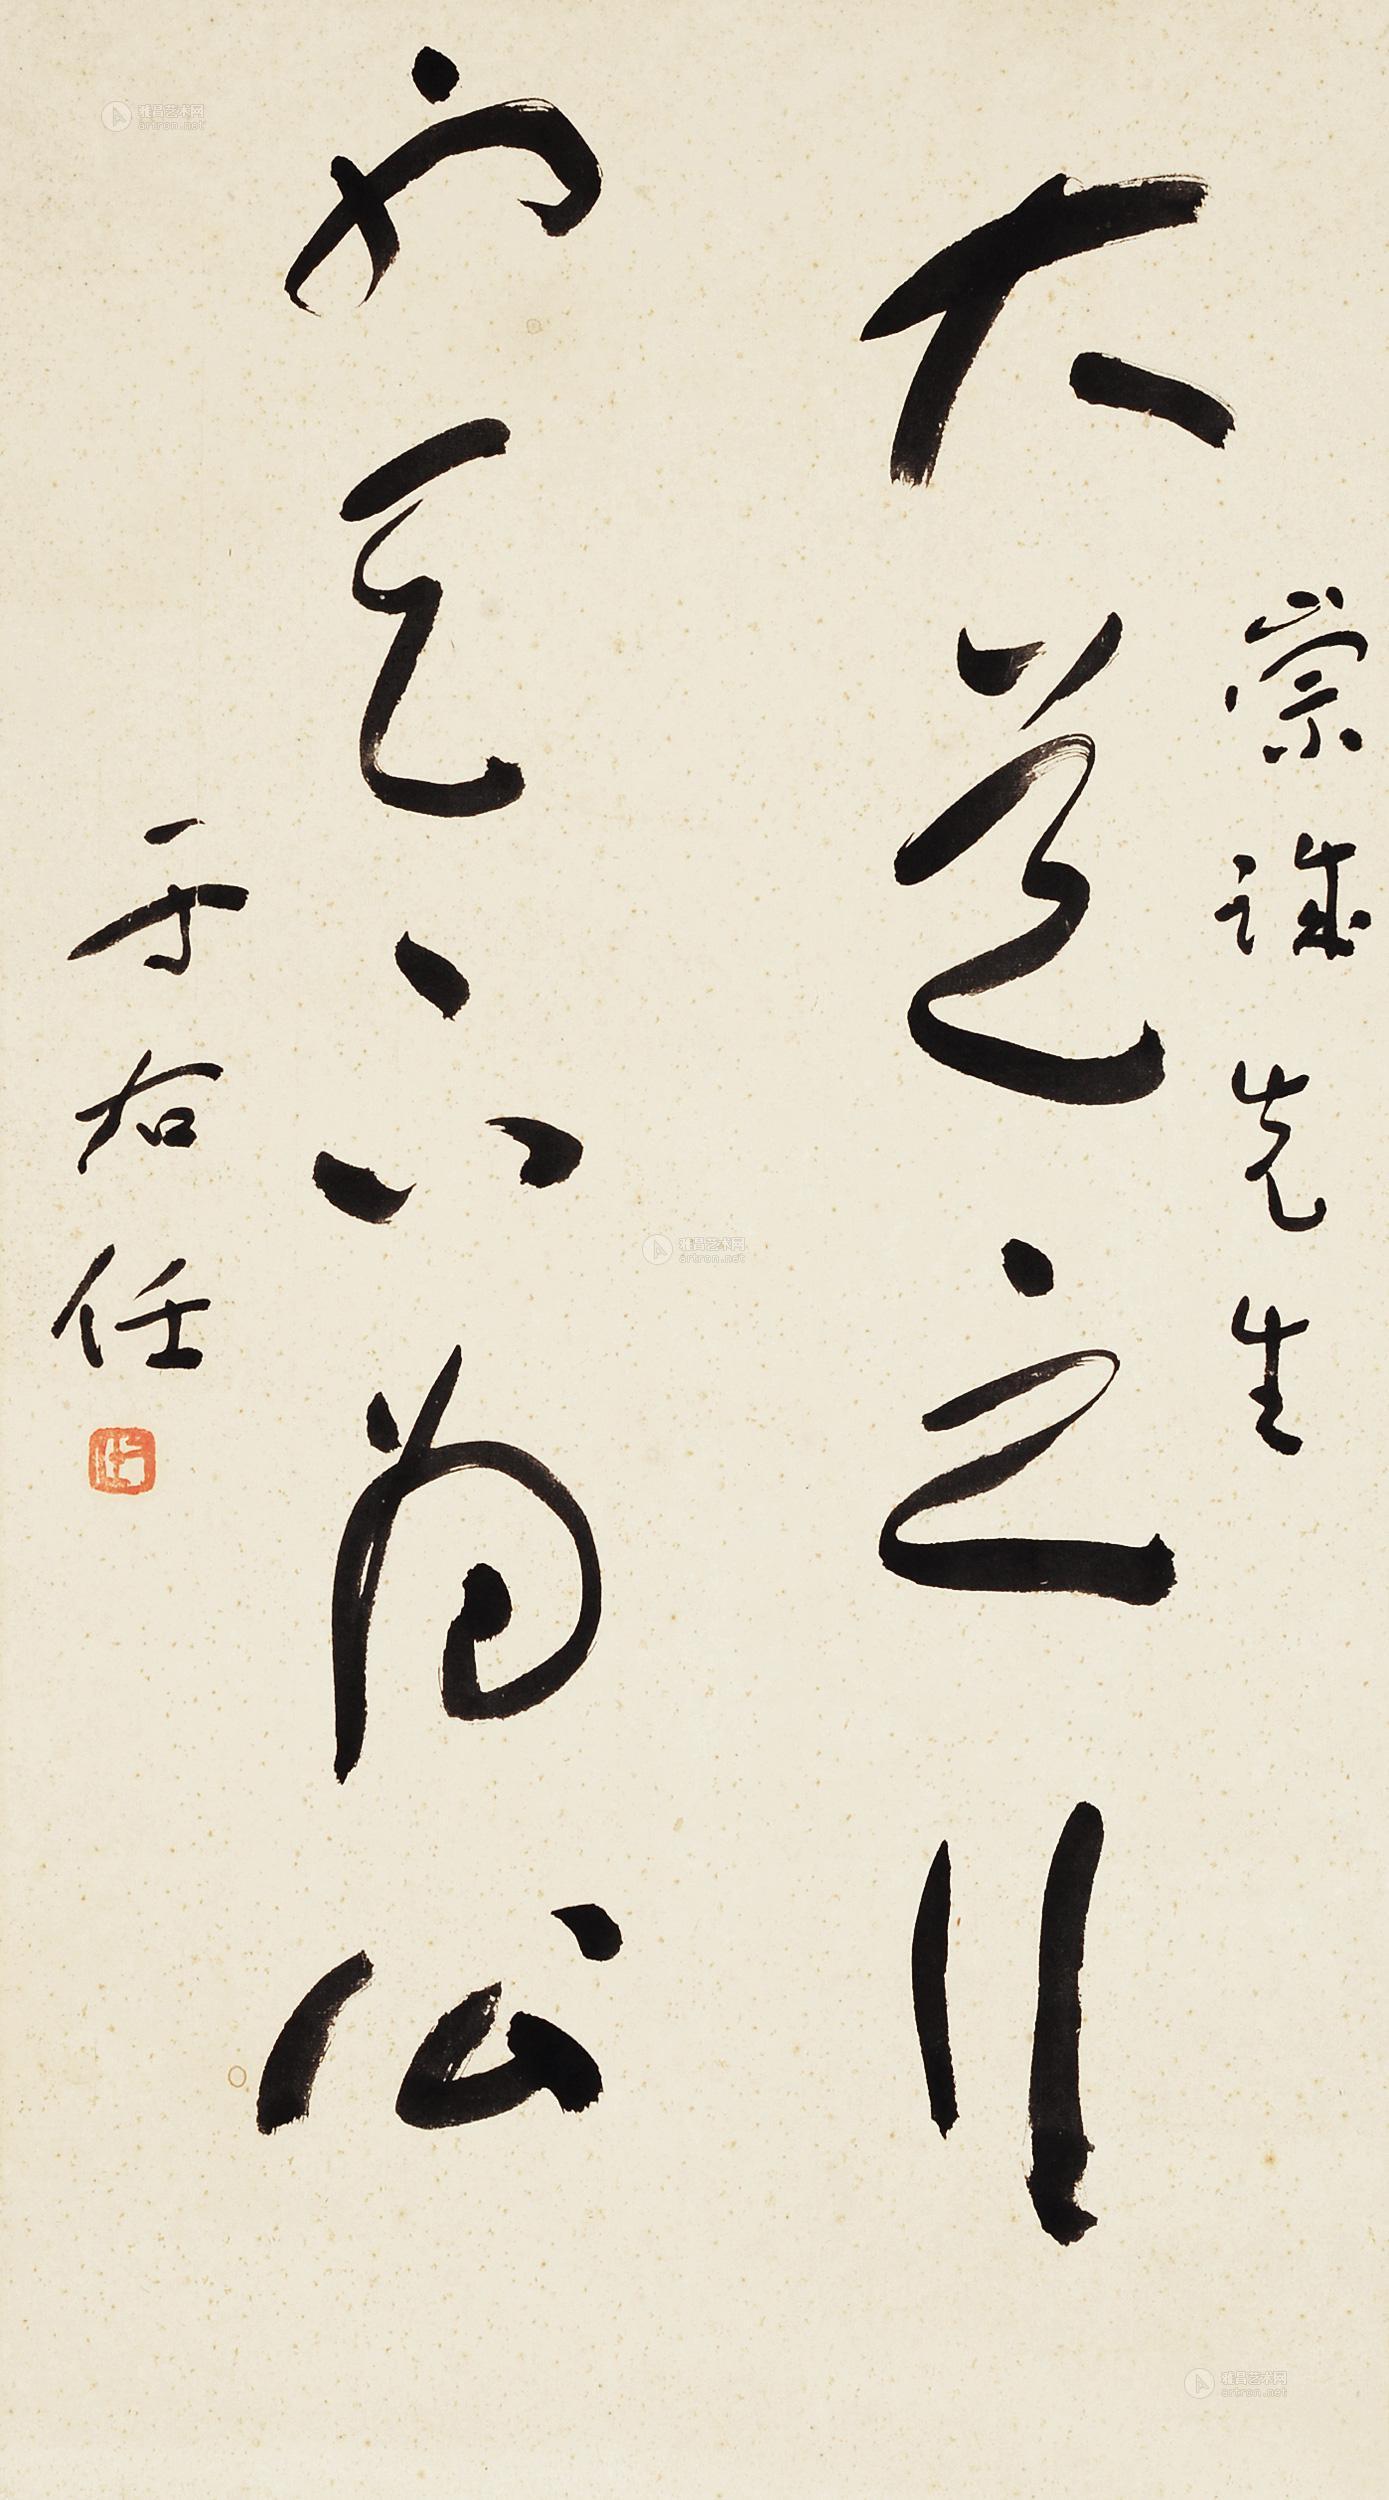 崇诚先生
大道之行
也天下為公
于右任
雅昌艺术网
artron.net
雅昌艺术网
artron.net
雅昌艺术网
artron.net